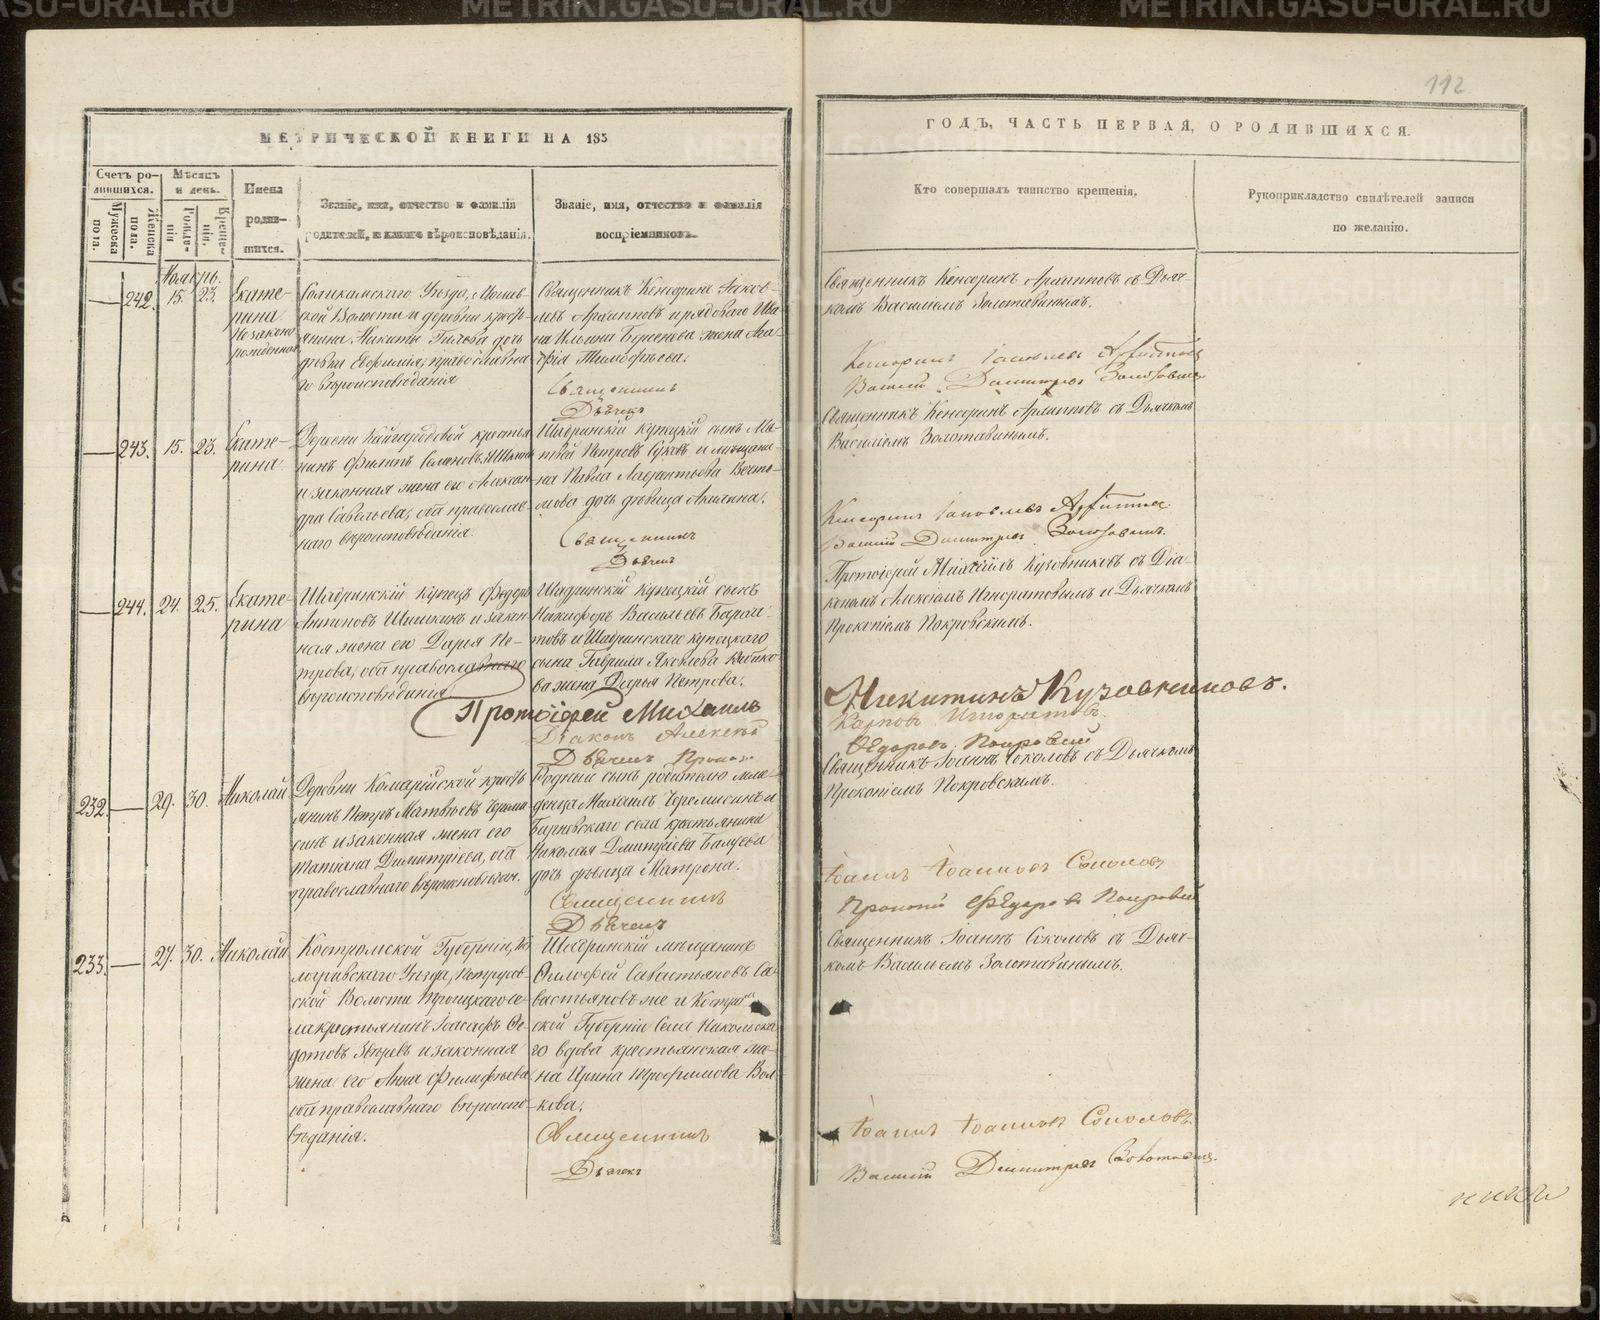 112
МЕТРИЧЕСКОЙ КНИГИ НА 185
ГОДЪ, ЧАСТЬ ПЕРВАЯ, О РОДИВШИХСЯ.
Счетъ ро-
дившихся.
Мужеска
пола.
Женска
пола.
Мѣсяцъ
и день.
Рожде-
нія
Креще-
нія.
Имена
родив-
шихся.
Званіе, имя, отчество и фамилія
родителей, и какого вѣроисповѣданія.
Званіе, имя, отчество и фамилія
воспріемниковъ.
Кто совершалъ таинство крещенія,
Рукоприкладство свидѣтелей записи
по желанію.
Ноябрь.
242. 15. 23.
Екате-
рина
незаконо
рожденная
Соликамскаго Уѣзда,
ской Волости и деревни кресть
янина Никиты дочь
дѣвка Евфимія, православна
го вѣроисповѣданія
Священникъ Кенсоринъ Іаков-
левъ Архиповъ и рядоваго Ива
на Ильина жена Ага
фія Тимофѣева.
Священникъ
Дьячекъ
Священникъ Кенсоринъ Архиповъ съ Дьяч-
комъ Василіемъ Золотавинымъ.
Кенсоринъ Іаковлевъ Архиповъ
Василій Димитріев Золотавинъ
243. 15. 23.
Екате-
рина
Деревни Кайгородовой кресть
нинъ Филипъ Семеновъ
и законная жена его Алексан
дра Савельева, оба православ
наго вѣроисповѣданія.
Шадринскій купецкій сынъ Ма-
твей Петровъ и мѣщани
на Павла Лаврентьева
дочь дѣвица Акилина.
Священникъ
Дьячекъ
Священникъ Кенсоринъ Архиповъ съ Дьячкомъ
Василіемъ Золотавинымъ.
Кенсоринъ Іаковлевъ Архиповъ
Василій Димитріев Золотавинъ.
244. 24. 25.
Екате-
рина
Шадринскій купецъ Федоръ
Антиповъ Шишкинъ и закон
ная жена его Дарья Пе-
трова, оба православнаго
вѣроисповѣданія
Шадринскій купецкій сынъ
Никифоръ Васильевъ
товъ и Шадринскаго купецкаго
сына Гаврила Яковлева
ва жена Дарья Петрова.
Протоіерей Михаилъ
Діаконъ Алексѣй
Дьячекъ Прокоп.
Протоіерей Михаилъ Кузовниковъ съ Діа-
кономъ Алексіемъ Игноратовымъ и Дьячкомъ
Прокопіемъ Покровскимъ.
Никитинъ Кузовниковъ.
Карповъ Игноратовъ.
Ѳедоровъ Покровскій
232. 29. 30.
Николай
Деревни Комарійской кресть
янинъ Петръ Матвѣевъ Череми
синъ и законная жена его
Татіана Димитріева, оба
православнаго вѣроисповѣдан.
Родный сынъ родителю мла-
денца Михаилъ Черемисинъ и
Барневскаго села крестьянина
Николая Дмитріева
дочь дѣвица Матрона.
Священникъ
Дьячекъ
Священникъ Іоаннъ Соколовъ съ Дьячкомъ
Прокопіемъ Покровскимъ.
Іоаннъ Іоанновъ Соколовъ
Прокопій Ѳедоровъ Покровскій
233. 27. 30.
Николай
Костромской Губерніи, Ко
логривскаго Уѣзда,
ской Волости Троицкаго се-
ла крестьянинъ Іоасафъ Ѳе-
дотовъ Звѣревъ и законная
жена его Анна Филифьева
оба православнаго вѣроиспо-
вѣданія.
Шадринскій мѣщанинъ
Савастьяновъ Са-
вастьяновъ же и Костром
ской Губерніи Села Никольска
го вдова крестьянская же-
на Ирина Трофимова Вол
кова.
Священникъ
Дьячекъ
Священникъ Іоаннъ Соколовъ съ Дьяч-
комъ Васильемъ Золотавинымъ.
Іоаннъ Іоанновъ Соколовъ.
Василій Димитріев Золотавинъ.
METRIKI.GASU-URAL.RU